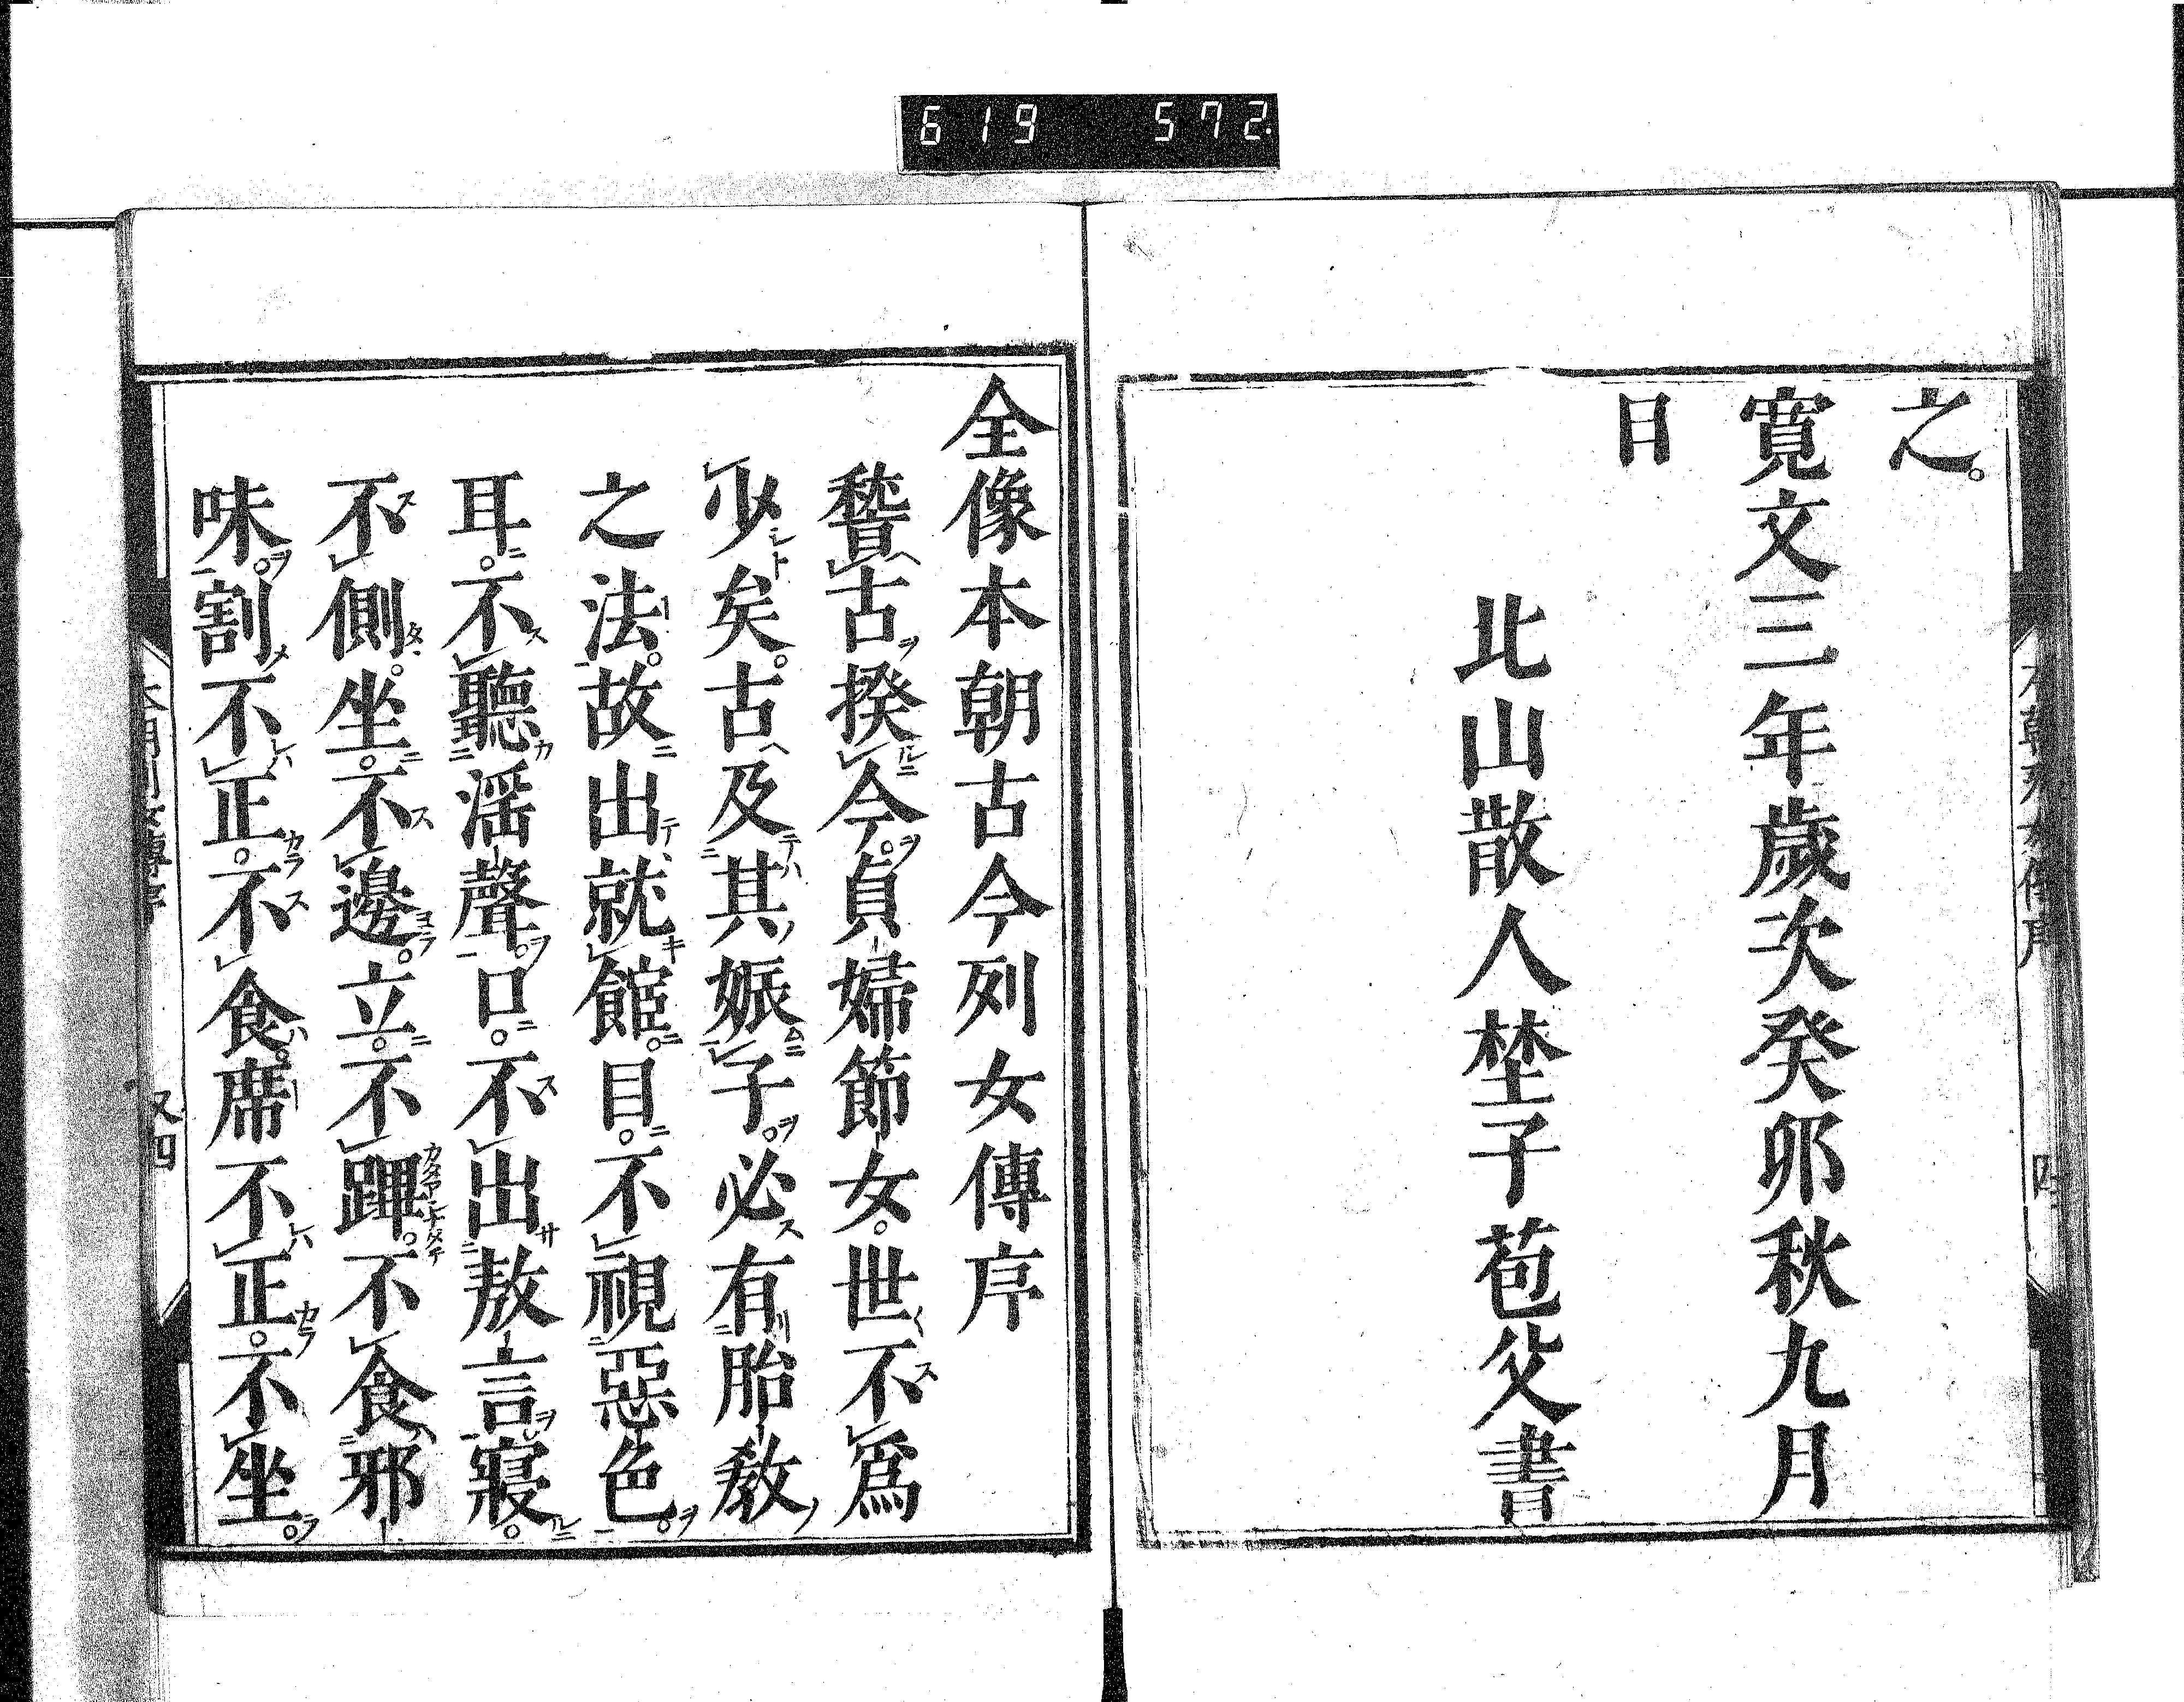 619 572
之。
寛文三年歳次癸卯秋九月
日
北山散人埜子苞父書
全像本朝古今列女傳序
稽古揆今。貞婦節女。世不爲
少矣。古及其娠子。必有胎教
之法。故出就館。目。不視惡色。
耳。不聽淫聲。口。不出敖言。寢。
不側。坐。不邊。立。不蹕。不食邪
味。割不正。不食。席不正。不坐。
又四